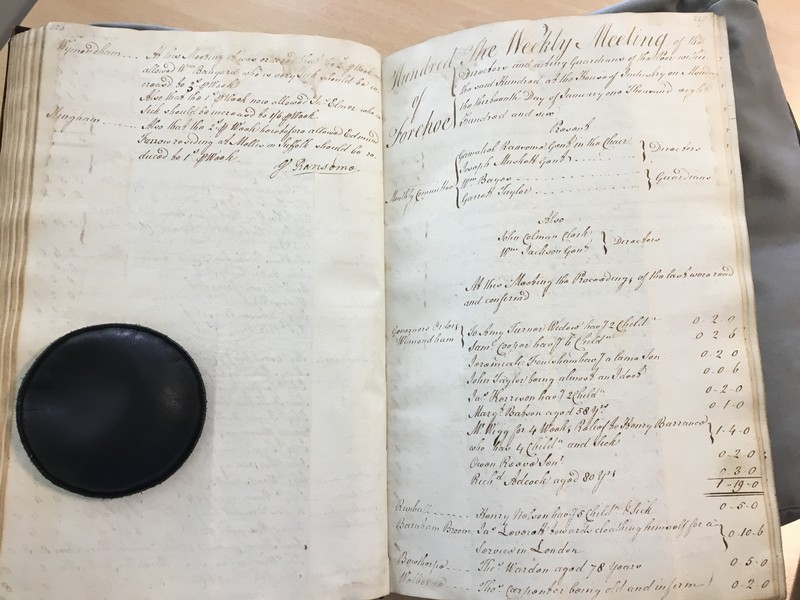 Wymondham At this Meeting it was ordered that the 2s. pr Week
allowed Wm Banyard who is very Sick should be in=
creased to 3s. pr Week
Also that the 1s. pr Week now allowed Jno. Elmer who is
Sick should be increased to 1/6 pr Week
Hingham Also that the 2s. pr Week heretofore allowed Edmund
Ferror residing at Mellis in Suffolk should be re
duced to 1s. pr Week
G Ransome
Hundred of Forehoe
The Weekly Meeting of the
Directors and acting Guardians of the Poor within
the said Hundred at the House of Industry on Monday
the thirteenth Day of January one Thousand eight
Hundred and six
Present
Monthly Committee
Gamaliel Ransome Gent. in the Chair
Joseph Muskett Gent. Directors
Wm Bayes
Garrett Taylor Guardians
Also
John Colman Clerk
Wm Jackson Gent. Directors
At this Meeting the Proceedings of the last were read
and confirmed
Governors Orders
Wymondham
To Amy Turner Widow has 2 Childn 0-2-0
Saml Cooper has 6 Childn 0 2 6
Jeremiah has a lame Son 0-2-0
John Taylor being almost an Ideot 0-0-6
Jas Harrison has 2 Childn 0-2-0
Margt Batson aged 58 yrs 0-1-0
Mr Wigg for 4 Weeks Relief to Henry Barrance
who has 4 Childn and Sick 1-4-0
Owen Reeve Senr 0-2-0
Richd Adcock aged 80 yrs 0-3-0
1-19-0
Runhall Henry Nelson has 5 Childn & Sick 0-5-0
Barnham Broom Jas Leverett towards cloathing himself for a
Service in London 0-10-6
Bowthorpe Thos Wardon aged 78 years 0-5-0
Thos Carpenter being old and infirm 0-2-0